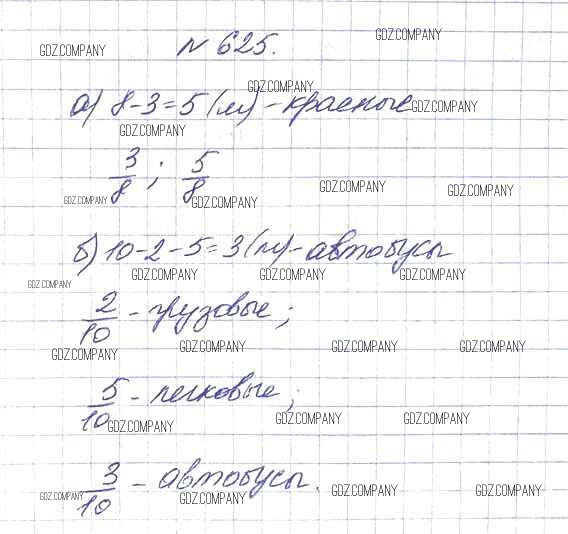 № 625.
GDZ.COMPANY GDZ.COMPANY
GDZ.COMPANY
а) 8-3=5 (м) - красные GDZ.COMPANY
GDZ.COMPANY
3/8 ; 5/8
GDZ.COMPANY GDZ.COMPANY GDZ.COMPANY GDZ.COMPANY
б) 10-2-5=3 (м) - автобусы
GDZ.COMPANY GDZ.COMPANY GDZ.COMPANY GDZ.COMPANY
2/10 - грузовые;
GDZ.COMPANY GDZ.COMPANY GDZ.COMPANY GDZ.COMPANY
5/10 - легковые;
GDZ.COMPANY GDZ.COMPANY GDZ.COMPANY
3/10 - автобусы.
GDZ.COMPANY GDZ.COMPANY GDZ.COMPANY GDZ.COMPANY